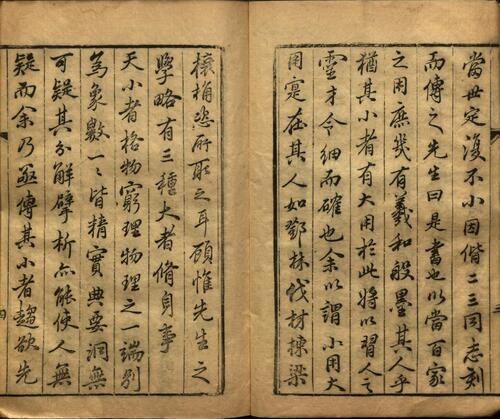 當世定復不小因偕二三同志刻
而傳之先生曰是書也以當百家
之用庶幾有羲和般墨其人乎
猶其小者有大用於此將以習人之
靈才令細而確也余以謂小用大
用寔在其人如鄧林伐材棟梁
榱桷恣所取之耳顧惟先生之
學略有三種大者脩身事
天小者格物窮理物理之一端別
為象數一一皆精實典要洞無
可疑其分解擘析亦能使人無
疑而余乃亟傳其小者趨欲先
四